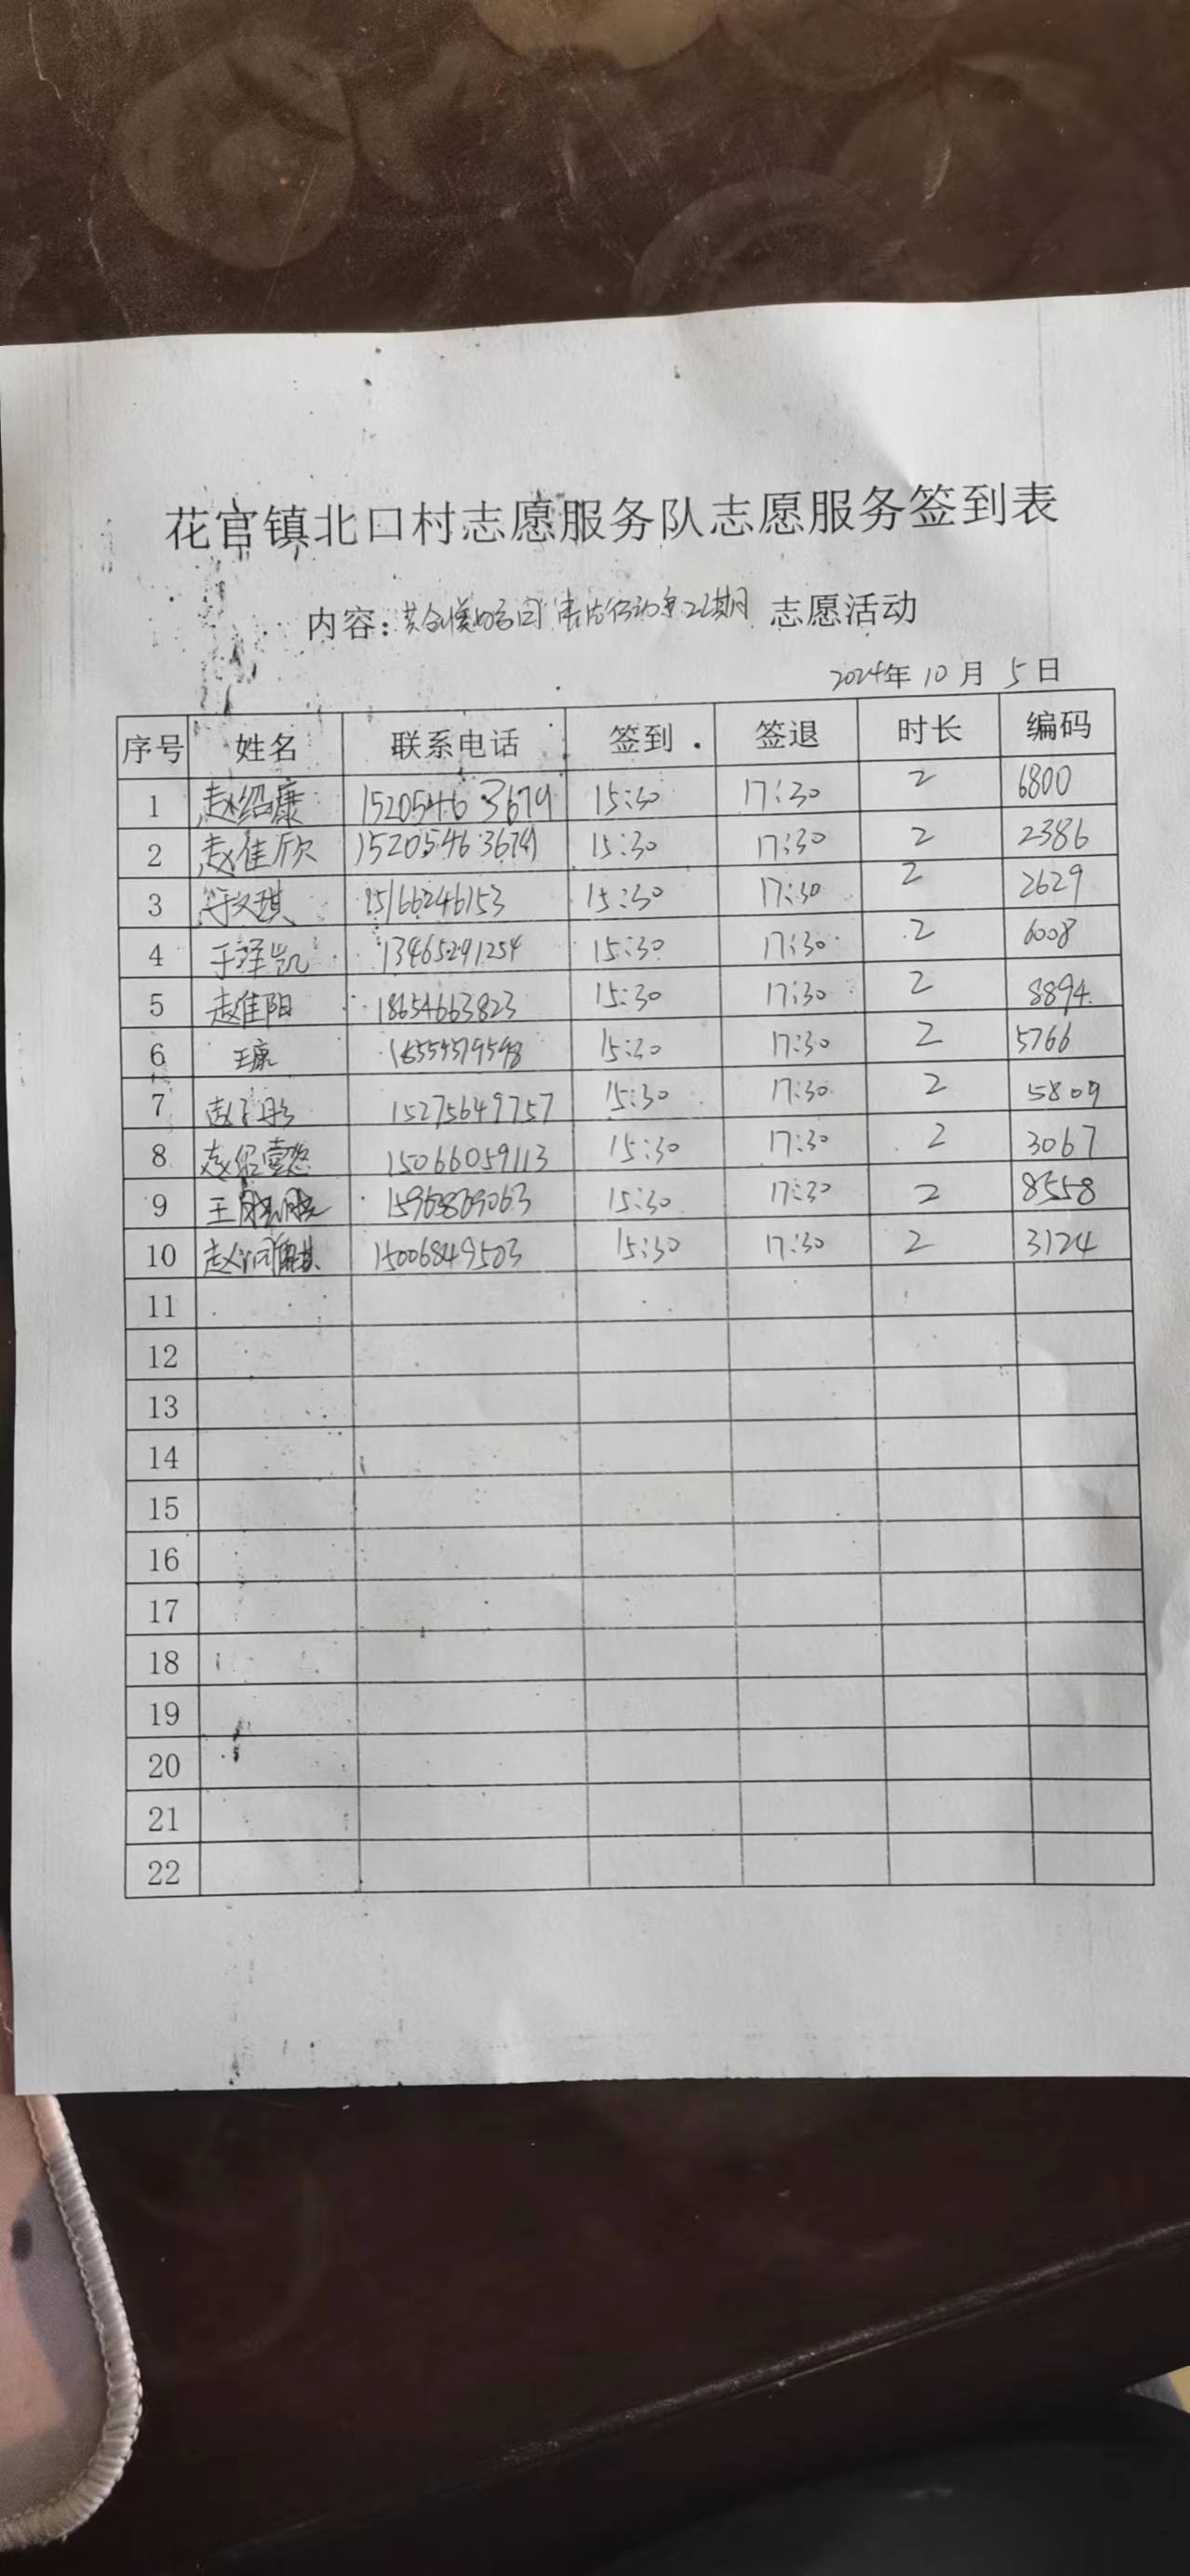 花官镇北口村志愿服务队志愿服务签到表
内容: 共创美好家园 清洁行动第22期 志愿活动
2024年 10 月 5 日
序号 姓名 联系电话 签到 签退 时长 编码
1 赵绍康 15205463679 15:30 17:30 2 6800
2 赵佳欣 15205463679 15:30 17:30 2 2386
3 于文琪 15166246153 15:30 17:30 2 2629
4 于泽凯 13465291254 15:30 17:30 2 6008
5 赵佳阳 18654663823 15:30 17:30 2 8894
6 王康 15:30 17:30 2 5766
7 赵子彤 15275649757 15:30 17:30 2 5809
8 赵绍懿 15066059113 15:30 17:30 2 3067
9 王 15963869063 15:30 17:30 2 8558
10 赵润麒 15006849503 15:30 17:30 2 3124
11
12
13
14
15
16
17
18
19
20
21
22